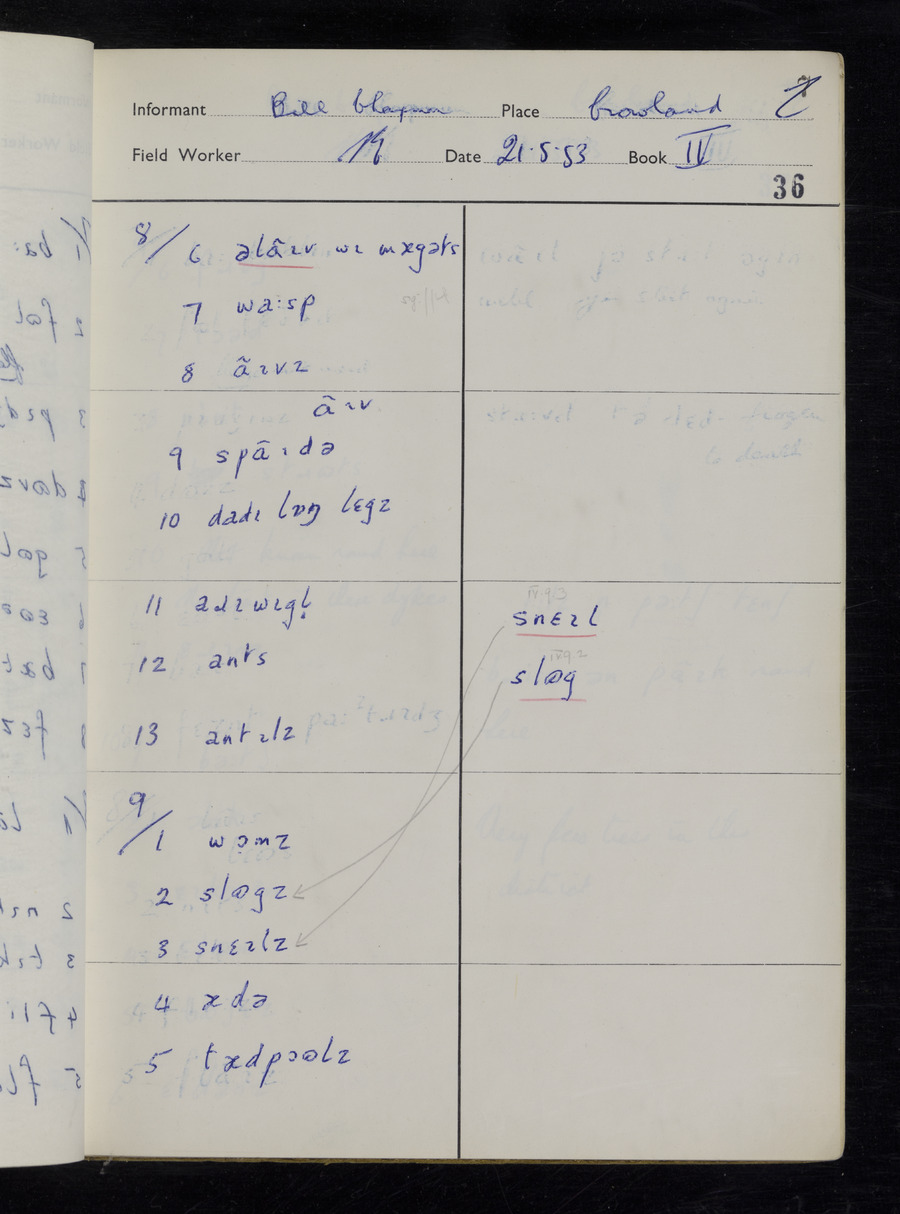 Informant Bill Chapman Place Crowland
Field Worker Date 21·5·53 Book IV
36
8/ 6 əlãɪv wɪ mægəts
7 waːsp
8 ãɪvz
ãɪv
9 spãɪdə
10 dadɪ lɒŋ lɛgz
11
12 ants
13
9/ 1 wɔmz
2 slɷgz
3 snɛɪlz
4 ædə
5 tædpɔɷlz
IV.9.3
snɛɪl
IV.9.2
slɷg